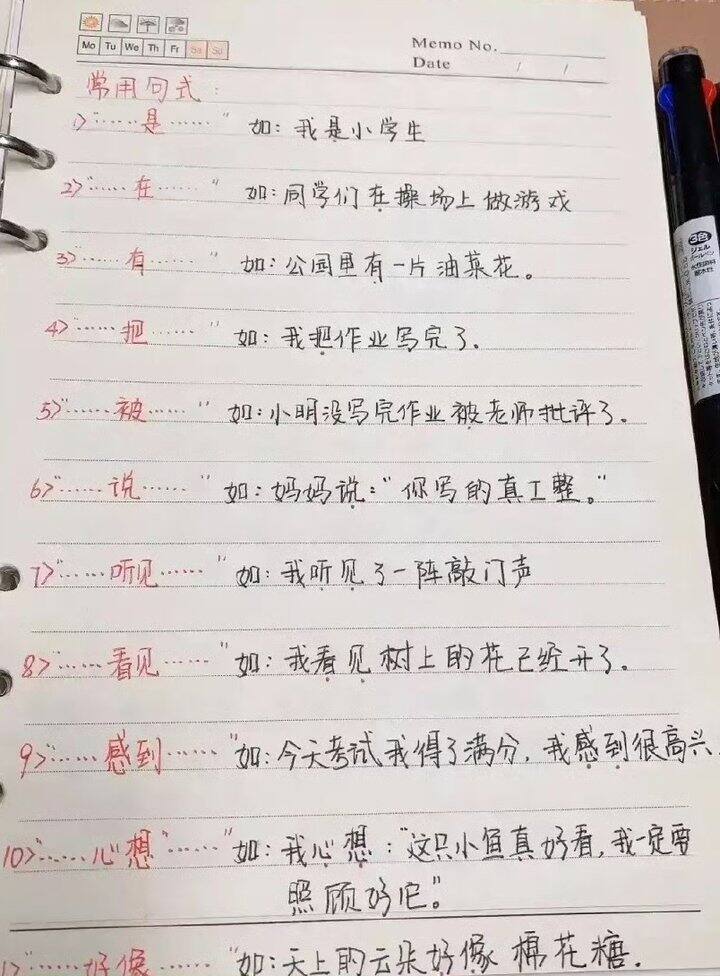 Mo Tu We Th Fr Sa Su
Memo No.
Date / /
常用句式：
1>"……是……" 如：我是小学生
2>"……在……" 如：同学们在操场上做游戏
3>"……有……" 如：公园里有一片油菜花。
4>"……把……" 如：我把作业写完了.
5>"……被……" 如：小明没写完作业被老师批评了.
6>"……说……" 如：妈妈说："你写的真工整。"
7>"……听见……" 如：我听见了一阵敲门声
8>"……看见……" 如：我看见树上的花已经开了.
9>"……感到……" 如：今天考试我得了满分，我感到很高兴.
10>"……心想……" 如：我心想："这只小鱼真好看，我一定要
照顾好它。"
"……好像……" 如：天上的云朵好像棉花糖.
3色
ジェル
ボールペン